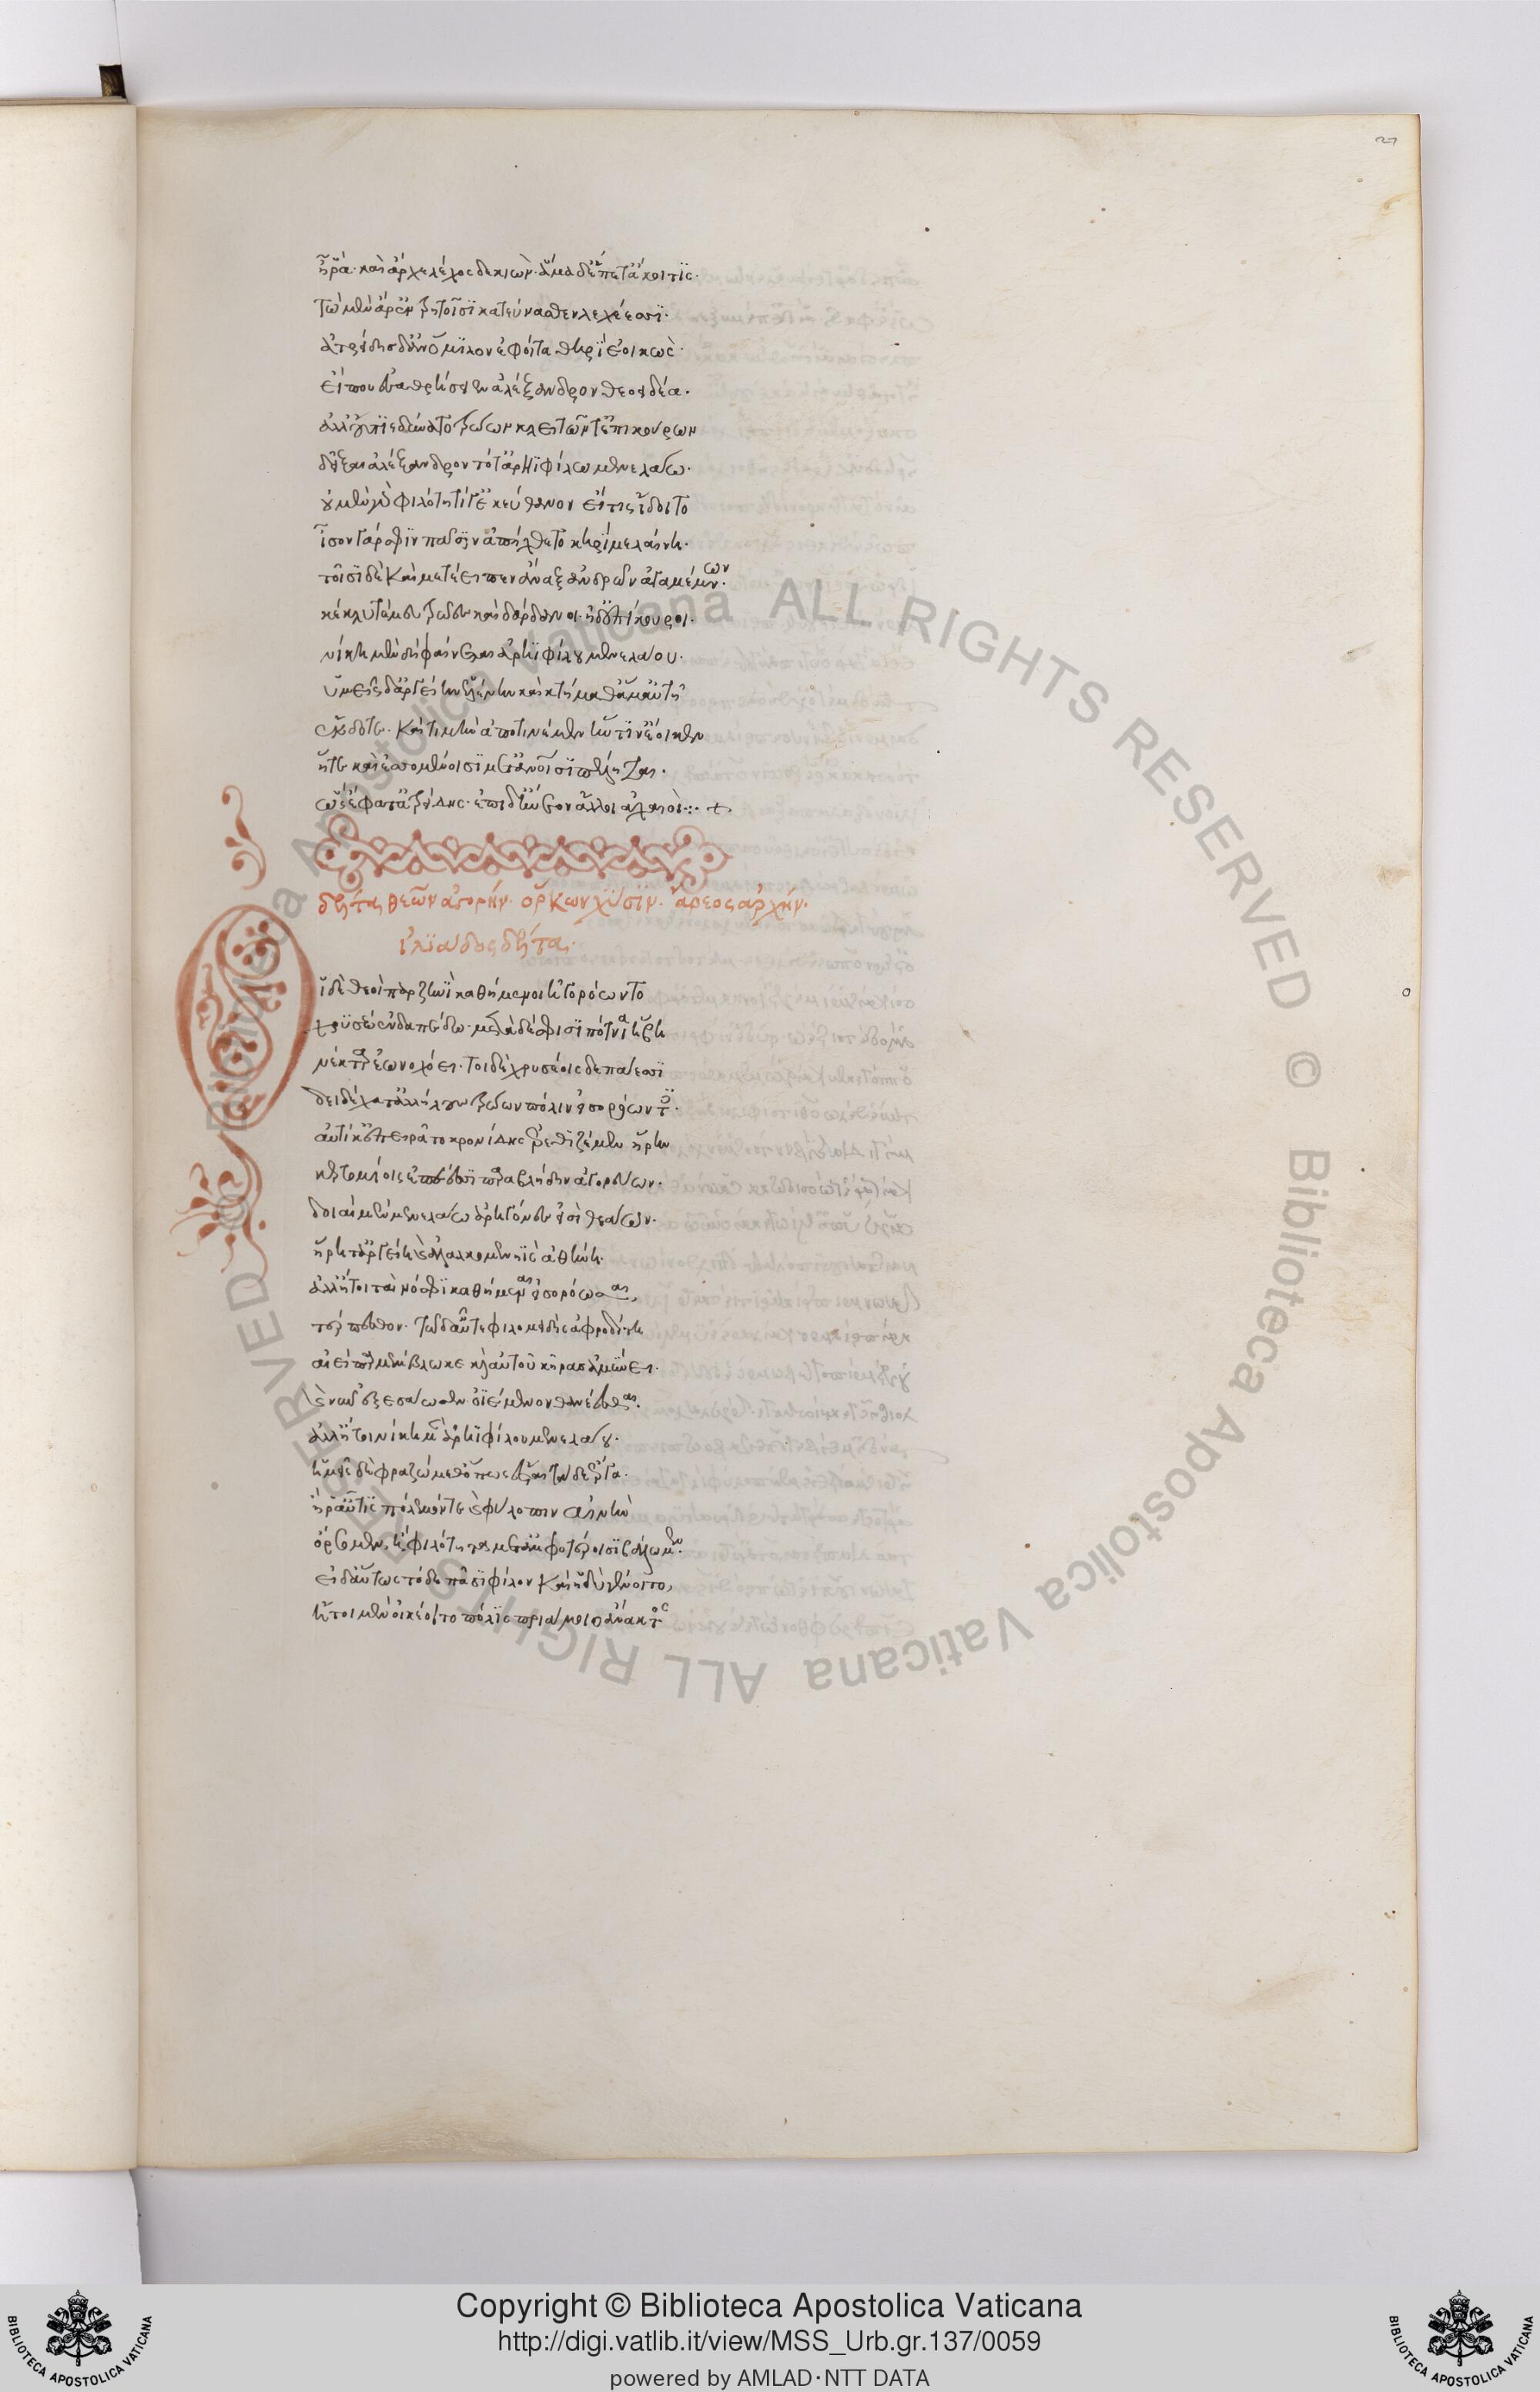 27
ἦ ῥα· καὶ ἄρχε λέχος δὲ κιών· ἅμα δ' εἵπετ' ἄκοιτις·
τὼ μὲν ἄρ' ἐν τρητοῖσι κατεύνασθεν λεχέεσσι·
ἀτρείδης δ' ἀν' ὅμιλον ἐφοίτα θηρὶ ἐοικὼς·
εἴ που ἐσαθρήσειεν ἀλέξανδρον θεοειδέα·
ἀλλ' οὔτις δύνατο τρώων κλειτῶν τ' ἐπικούρων
δεῖξαι ἀλέξανδρον τότ' ἀρηϊφίλω μενελάω·
οὐ μὲν γὰρ φιλότητί γ' ἐκεύθανον εἴ τις ἴδοιτο
ἶσον γάρ σφιν πᾶσιν ἀπήχθετο κηρὶ μελαίνη·
τοῖσι δὲ καὶ μετέειπεν ἄναξ ἀνδρῶν ἀγαμέμνων·
κέκλυτέ μευ τρῶες καὶ δάρδανοι ἠδ' ἐπίκουροι·
νίκη μὲν δὴ φαίνεται ἀρηϊφίλου μενελάου·
ὑμεῖς δ' ἀργείην ἑλένην καὶ κτήμαθ' ἅμ' αὐτῆ
ἔκδοτε· καὶ τιμὴν ἀποτινέμεν ἥν τιν' ἔοικεν
ἥτε καὶ ἐσσομένοισι μετ' ἀνθρώποισι πέληται·
ὣς ἔφατ' ἀτρείδης· ἐπὶ δ' ἤνεον ἄλλοι ἀχαιοὶ:· +
δέλτα θεῶν ἀγορήν· ὅρκων χύσιν· ἄρεος ἀρχήν·
ἰλιάδος δέλτα·
Οἱ δὲ θεοὶ πὰρ ζηνὶ καθήμενοι ἠγορόωντο
χρυσέω ἐν δαπέδω· μετὰ δέ σφισι πότνια ἥβη
νέκταρ ἐωνοχόει· τοὶ δὲ χρυσέοις δεπάεσσι
δειδέχατ' ἀλλήλους τρώων πόλιν εἰσορόωντες·
αὐτίκ' ἐπειρᾶτο κρονίδης ἐρεθιζέμεν ἥρην
κερτομίοις ἐπέεσσι παραβλήδην ἀγορεύων·
δοιαὶ μὲν μενελάω ἀρηγόνες εἰσὶ θεάων·
ἥρη τ' ἀργείη καὶ ἀλαλκομενηῒς ἀθήνη·
ἀλλ' ἤτοι ταὶ νόσφι καθήμεναι εἰσορόωσαι
τέρπεσθον· τῶ δ' αὖτε φιλομειδὴς ἀφροδίτη
αἰεὶ παρμέμβλωκε καὶ αὐτοῦ κῆρας ἀμύνει·
καὶ νῦν ἐξεσάωσεν ὀϊόμενον θανέεσθαι·
ἀλλ' ἤτοι νίκη μὲν ἀρηϊφίλου μενελάου·
ἡμεῖς δὲ φραζώμεθ' ὅπως ἔσται τάδε ἔργα·
ἤ ῥ' αὖτις πόλεμόν τε καὶ φύλοπιν αἰνὴν
ὄρσομεν, ἦ φιλότητα μετ' ἀμφοτέροισι βάλωμεν·
εἰ δ' αὔτως τόδε πᾶσι φίλον καὶ ἡδὺ γένοιτο,
ἤτοι μὲν οἰκέοιτο πόλις πριάμοιο ἄνακτος
Copyright © Biblioteca Apostolica Vaticana
http://digi.vatlib.it/view/MSS_Urb.gr.137/0059
powered by AMLAD·NTT DATA